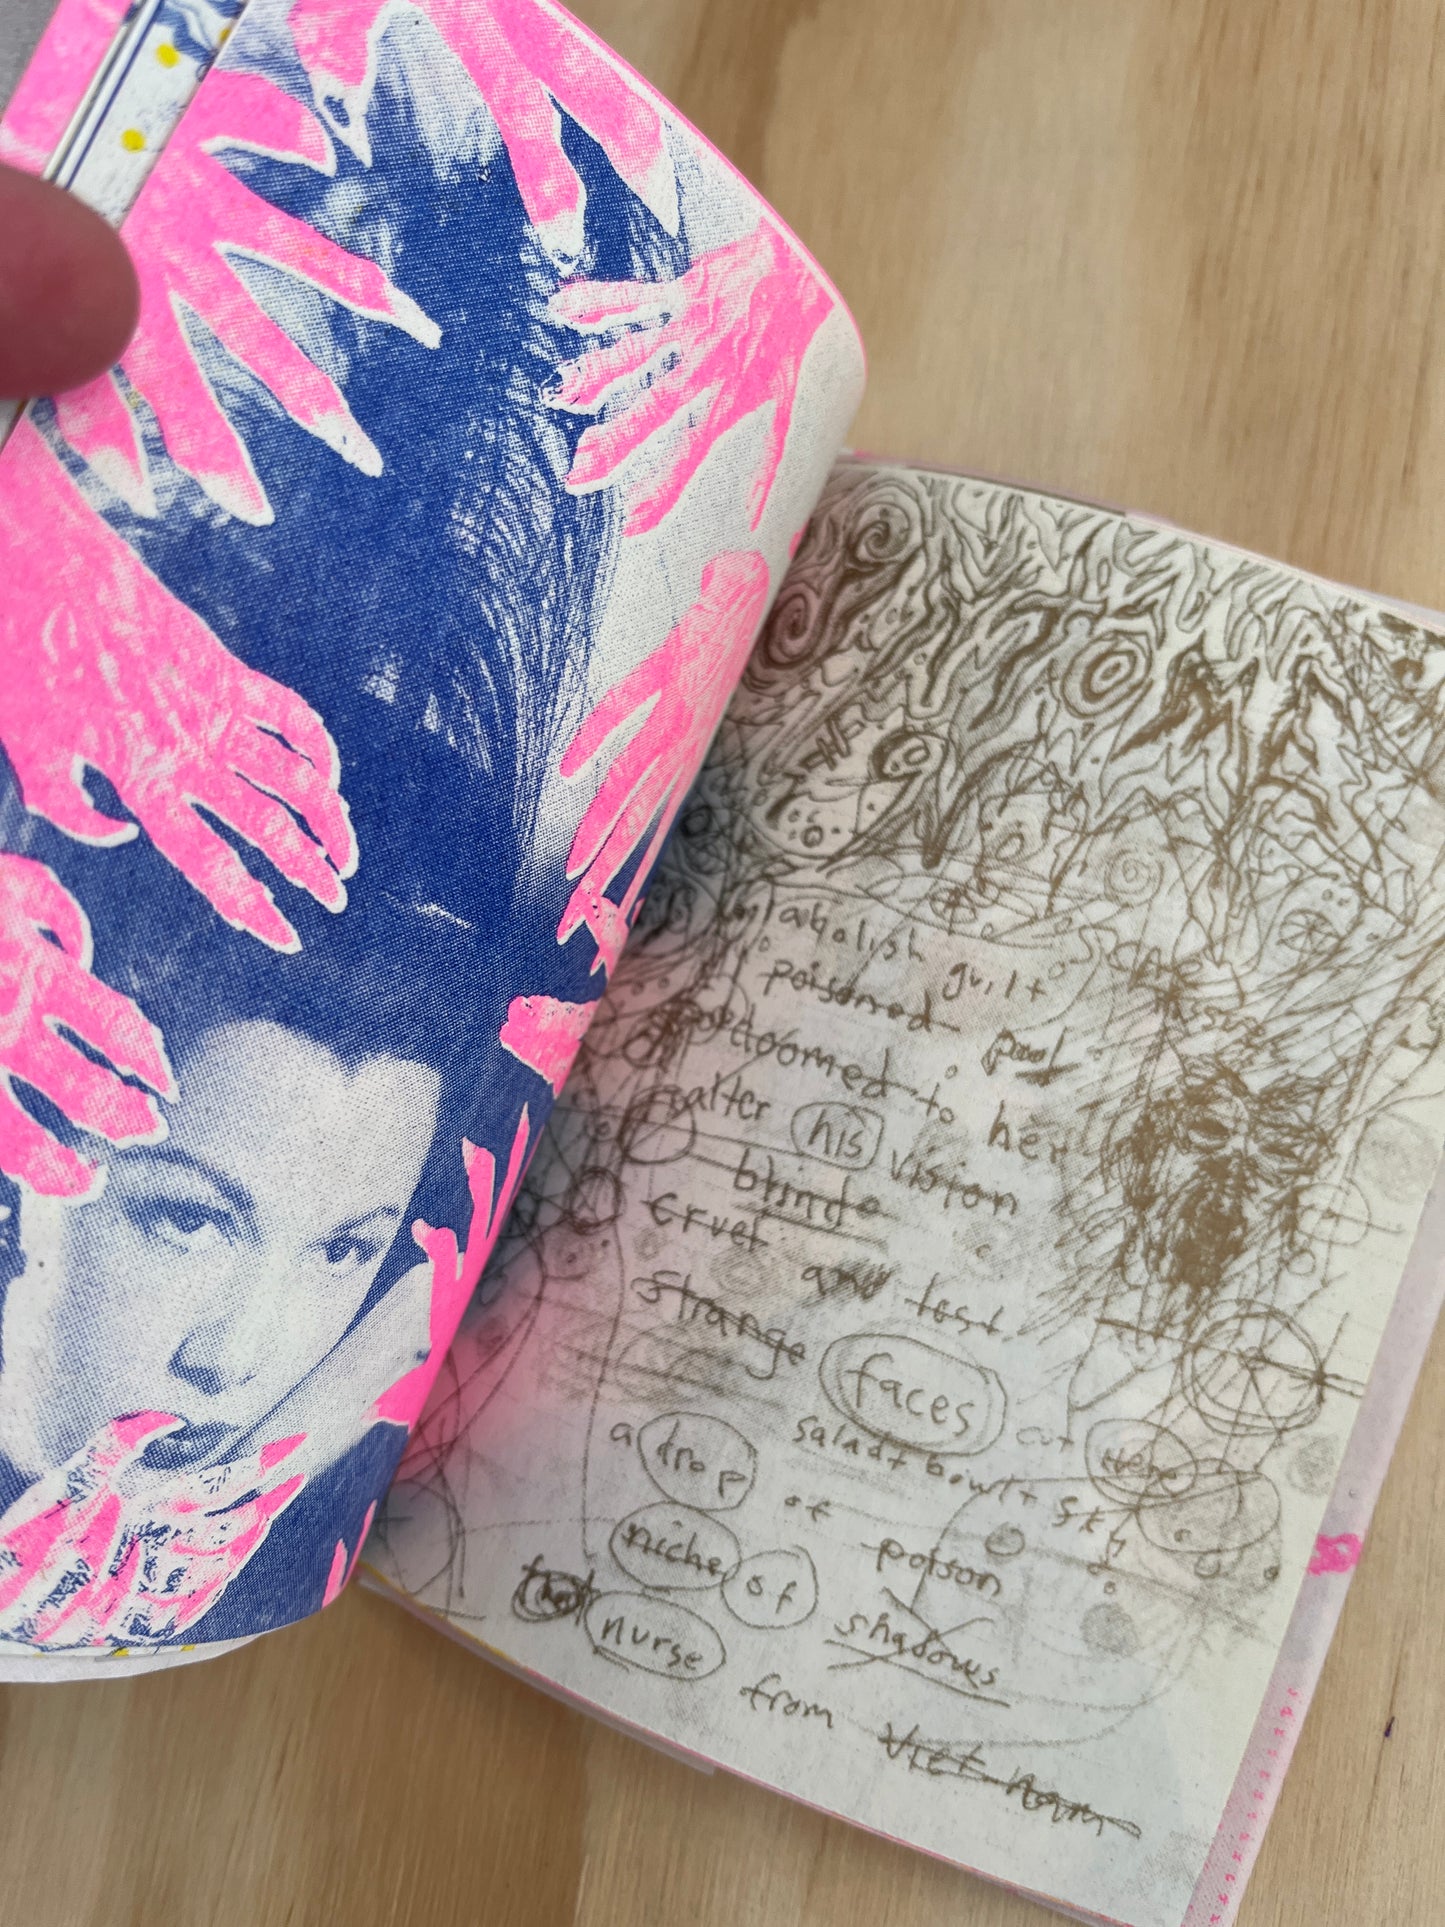 abolish guilt
poisoned pool
doomed to her
alter his vision
blinde
cruel
and test
strange faces cut Here
salad + bowl + sky
a drop of poison
niche of shadows
that nurse from Viet-nam